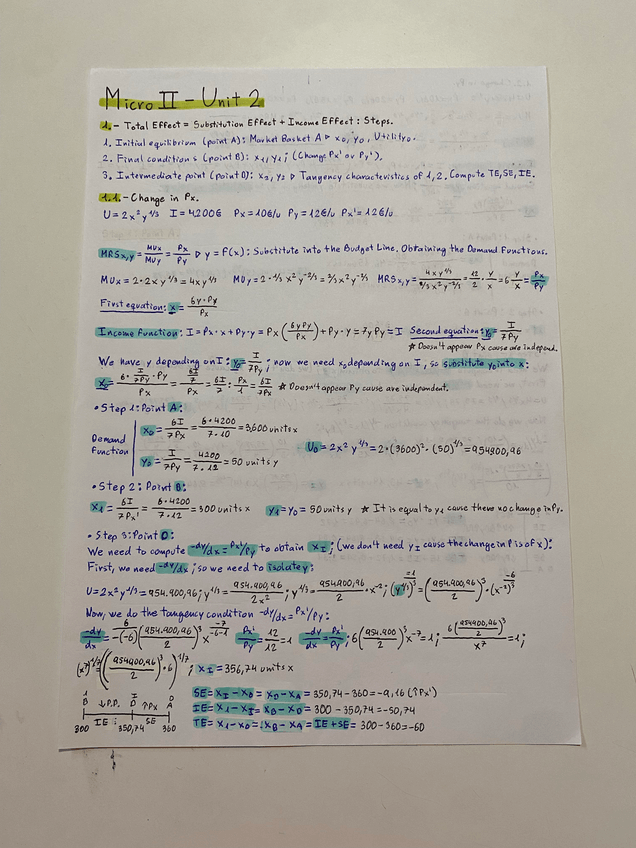 Micro II - Unit 2
1.- Total Effect = Substitution Effect + Income Effect: Steps.
1. Initial equilibrium (point A): Market Basket A ▷ x₀, y₀, Utility₀.
2. Final conditions (point B): x₁, y₁; (Change Px' or Py').
3. Intermediate point (point D): x₂, y₂ ▷ Tangency characteristics of 1, 2. Compute TE, SE, IE.
1.1.- Change in Px.
U = 2x² y^1/3 I = 4200€ Px = 10€/u Py = 12€/u Px' = 12€/u
MRSx,y = MUx/MUy = Px/Py ▷ y = f(x): Substitute into the Budget Line. Obtaining the Demand Functions.
MUx = 2·2x y^1/3 = 4x y^1/3 MUy = 2·1/3 x² y^-2/3 = 2/3 x² y^-2/3 MRSx,y = 4x y^1/3 / 2/3 x² y^-2/3 = 12/2 · y/x = 6 y/x = Px/Py
First equation: x = 6y·Py/Px
Income Function: I = Px·x + Py·y = Px (6yPy/Px) + Py·y = 7yPy = I Second equation: y₀ = I/7Py
★ Doesn't appear Px cause are independ.
We have y depending on I: y₀ = I/7Py; now we need x₀ depending on I, so substitute y₀ into x:
x₀ = 6·I/7Py·Py / Px = 6I/7 / Px = 6I/7 : Px/1 = 6I/7Px ★ Doesn't appear Py cause are independent.
• Step 1: Point A:
Demand Function
x₀ = 6I/7Px = 6·4200/7·10 = 3,600 units x
y₀ = I/7Py = 4200/7·12 = 50 units y
U₀ = 2x² y^1/3 = 2·(3600)²·(50)^1/3 = 954900,96
• Step 2: Point B:
x₁ = 6I/7Px' = 6·4200/7·12 = 300 units x y₁ = y₀ = 50 units y ★ It is equal to y₁ cause there no change in Py.
• Step 3: Point D:
We need to compute -dy/dx = Px'/Py to obtain xI; (we don't need yI cause the change in P is of x):
First, we need -dy/dx; so we need to isolate y:
U = 2x² y^1/3 = 954.900,96; y^1/3 = 954.900,96/2x²; y^1/3 = 954.900,96/2 · x^-2; (y^1/3)^3 =1 = (954.900,96/2)^3 · (x^-2)^3 -6
Now, we do the tangency condition -dy/dx = Px'/Py:
-dy/dx = 6 -(-6) (954.900,96/2)^3 x^-7 -6-1 Px'/Py = 12/12 = 1 -dy/dx = Px'/Py; 6(954900,96/2)^3 x^-7 = 1; 6(954900,96/2)^3 / x^7 = 1;
(x^7)^1/7 = ((954900,96/2)^3 · 6)^1/7; xI = 356,74 units x
SE = xI - x0 = xD - xA = 350,74 - 360 = -9,16 (↑Px')
IE = x1 - xI = xB - xD = 300 - 350,74 = -50,74
TE = x1 - x0 = xB - xA = IE + SE = 300 - 360 = -60
1 I 0
B ↓P.P. D ↑Px A
IE SE
300 350,74 360